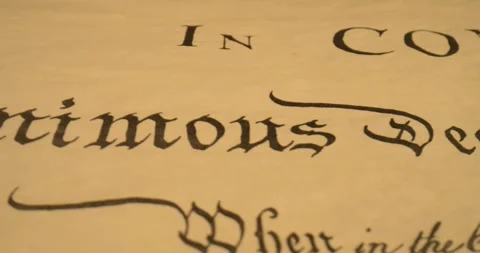 IN CO
nimous De
When in the